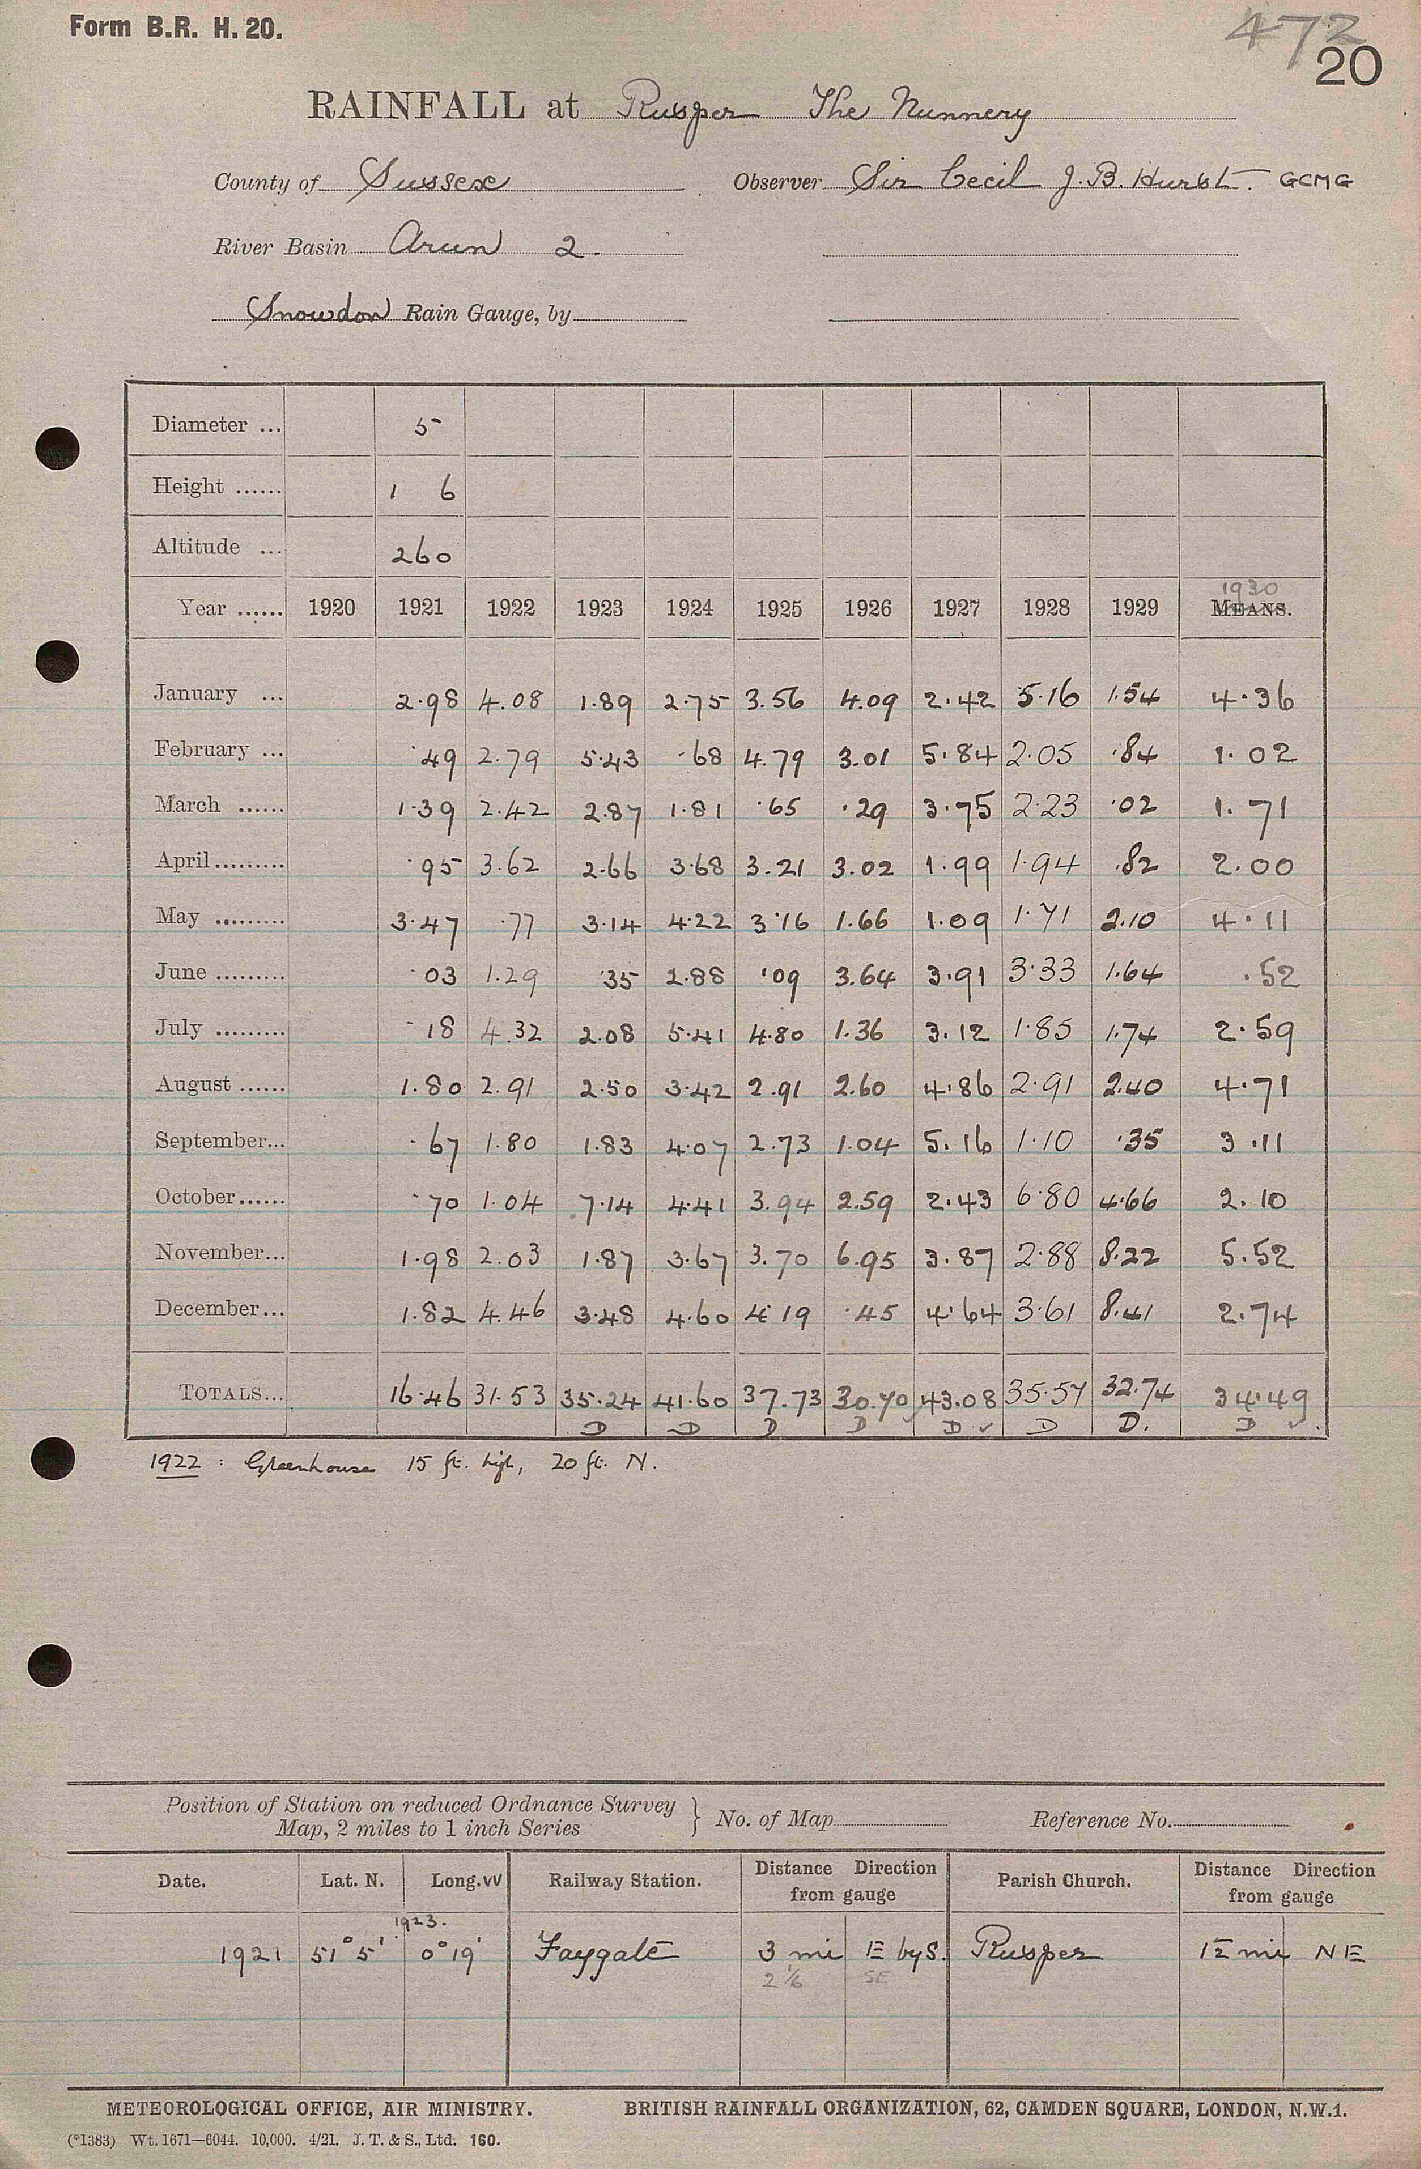 Form B.R. H. 20.
472
20
RAINFALL at Rusper The Nunnery
County of Sussex Observer Sir Cecil J. B. Hurst. GCMG
River Basin Arun 2.
Snowdon Rain Gauge, by
Diameter ... 5
Height ...... 1 6
Altitude ... 260
1930
Year ...... 1920 1921 1922 1923 1924 1925 1926 1927 1928 1929 MEANS.
January ... 2.98 4.08 1.89 2.75 3.56 4.09 2.42 5.16 1.54 4.36
February ... .49 2.79 5.43 .68 4.79 3.01 5.84 2.05 .84 1.02
March ...... 1.39 2.42 2.87 1.81 .65 .29 3.75 2.23 .02 1.71
April ......... .95 3.62 2.66 3.68 3.21 3.02 1.99 1.94 .82 2.00
May ......... 3.47 .77 3.14 4.22 3.16 1.66 1.09 1.71 2.10 4.11
June ......... .03 1.29 .35 2.88 .09 3.64 3.91 3.33 1.64 .52
July ......... .18 4.32 2.08 5.41 4.80 1.36 3.12 1.85 1.74 2.59
August ...... 1.80 2.91 2.50 3.42 2.91 2.60 4.86 2.91 2.40 4.71
September... .67 1.80 1.83 4.07 2.73 1.04 5.16 1.10 .35 3.11
October ...... .70 1.04 7.14 4.41 3.94 2.59 2.43 6.80 4.66 2.10
November... 1.98 2.03 1.87 3.67 3.70 6.95 3.87 2.88 8.22 5.52
December... 1.82 4.46 3.48 4.60 4.19 .45 4.64 3.61 8.41 2.74
TOTALS... 16.46 31.53 35.24 41.60 37.73 30.70 43.08 35.57 32.74 34.49
D D D D D ✓ D D. D ✓
1922 : Greenhouse 15 ft. high, 20 ft. N.
Position of Station on reduced Ordnance Survey
Map, 2 miles to 1 inch Series } No. of Map Reference No.
Date. Lat. N. Long. W Railway Station. Distance Direction from gauge Parish Church. Distance Direction from gauge
1923.
1921 51° 5' 0° 19' Faygate 3 mi E by S. Rusper 1/2 mi NE
2 1/6 SE
METEOROLOGICAL OFFICE, AIR MINISTRY. BRITISH RAINFALL ORGANIZATION, 62, CAMDEN SQUARE, LONDON, N.W.1.
(*1383) Wt. 1671—6044. 10,000. 4/21. J. T. & S., Ltd. 160.